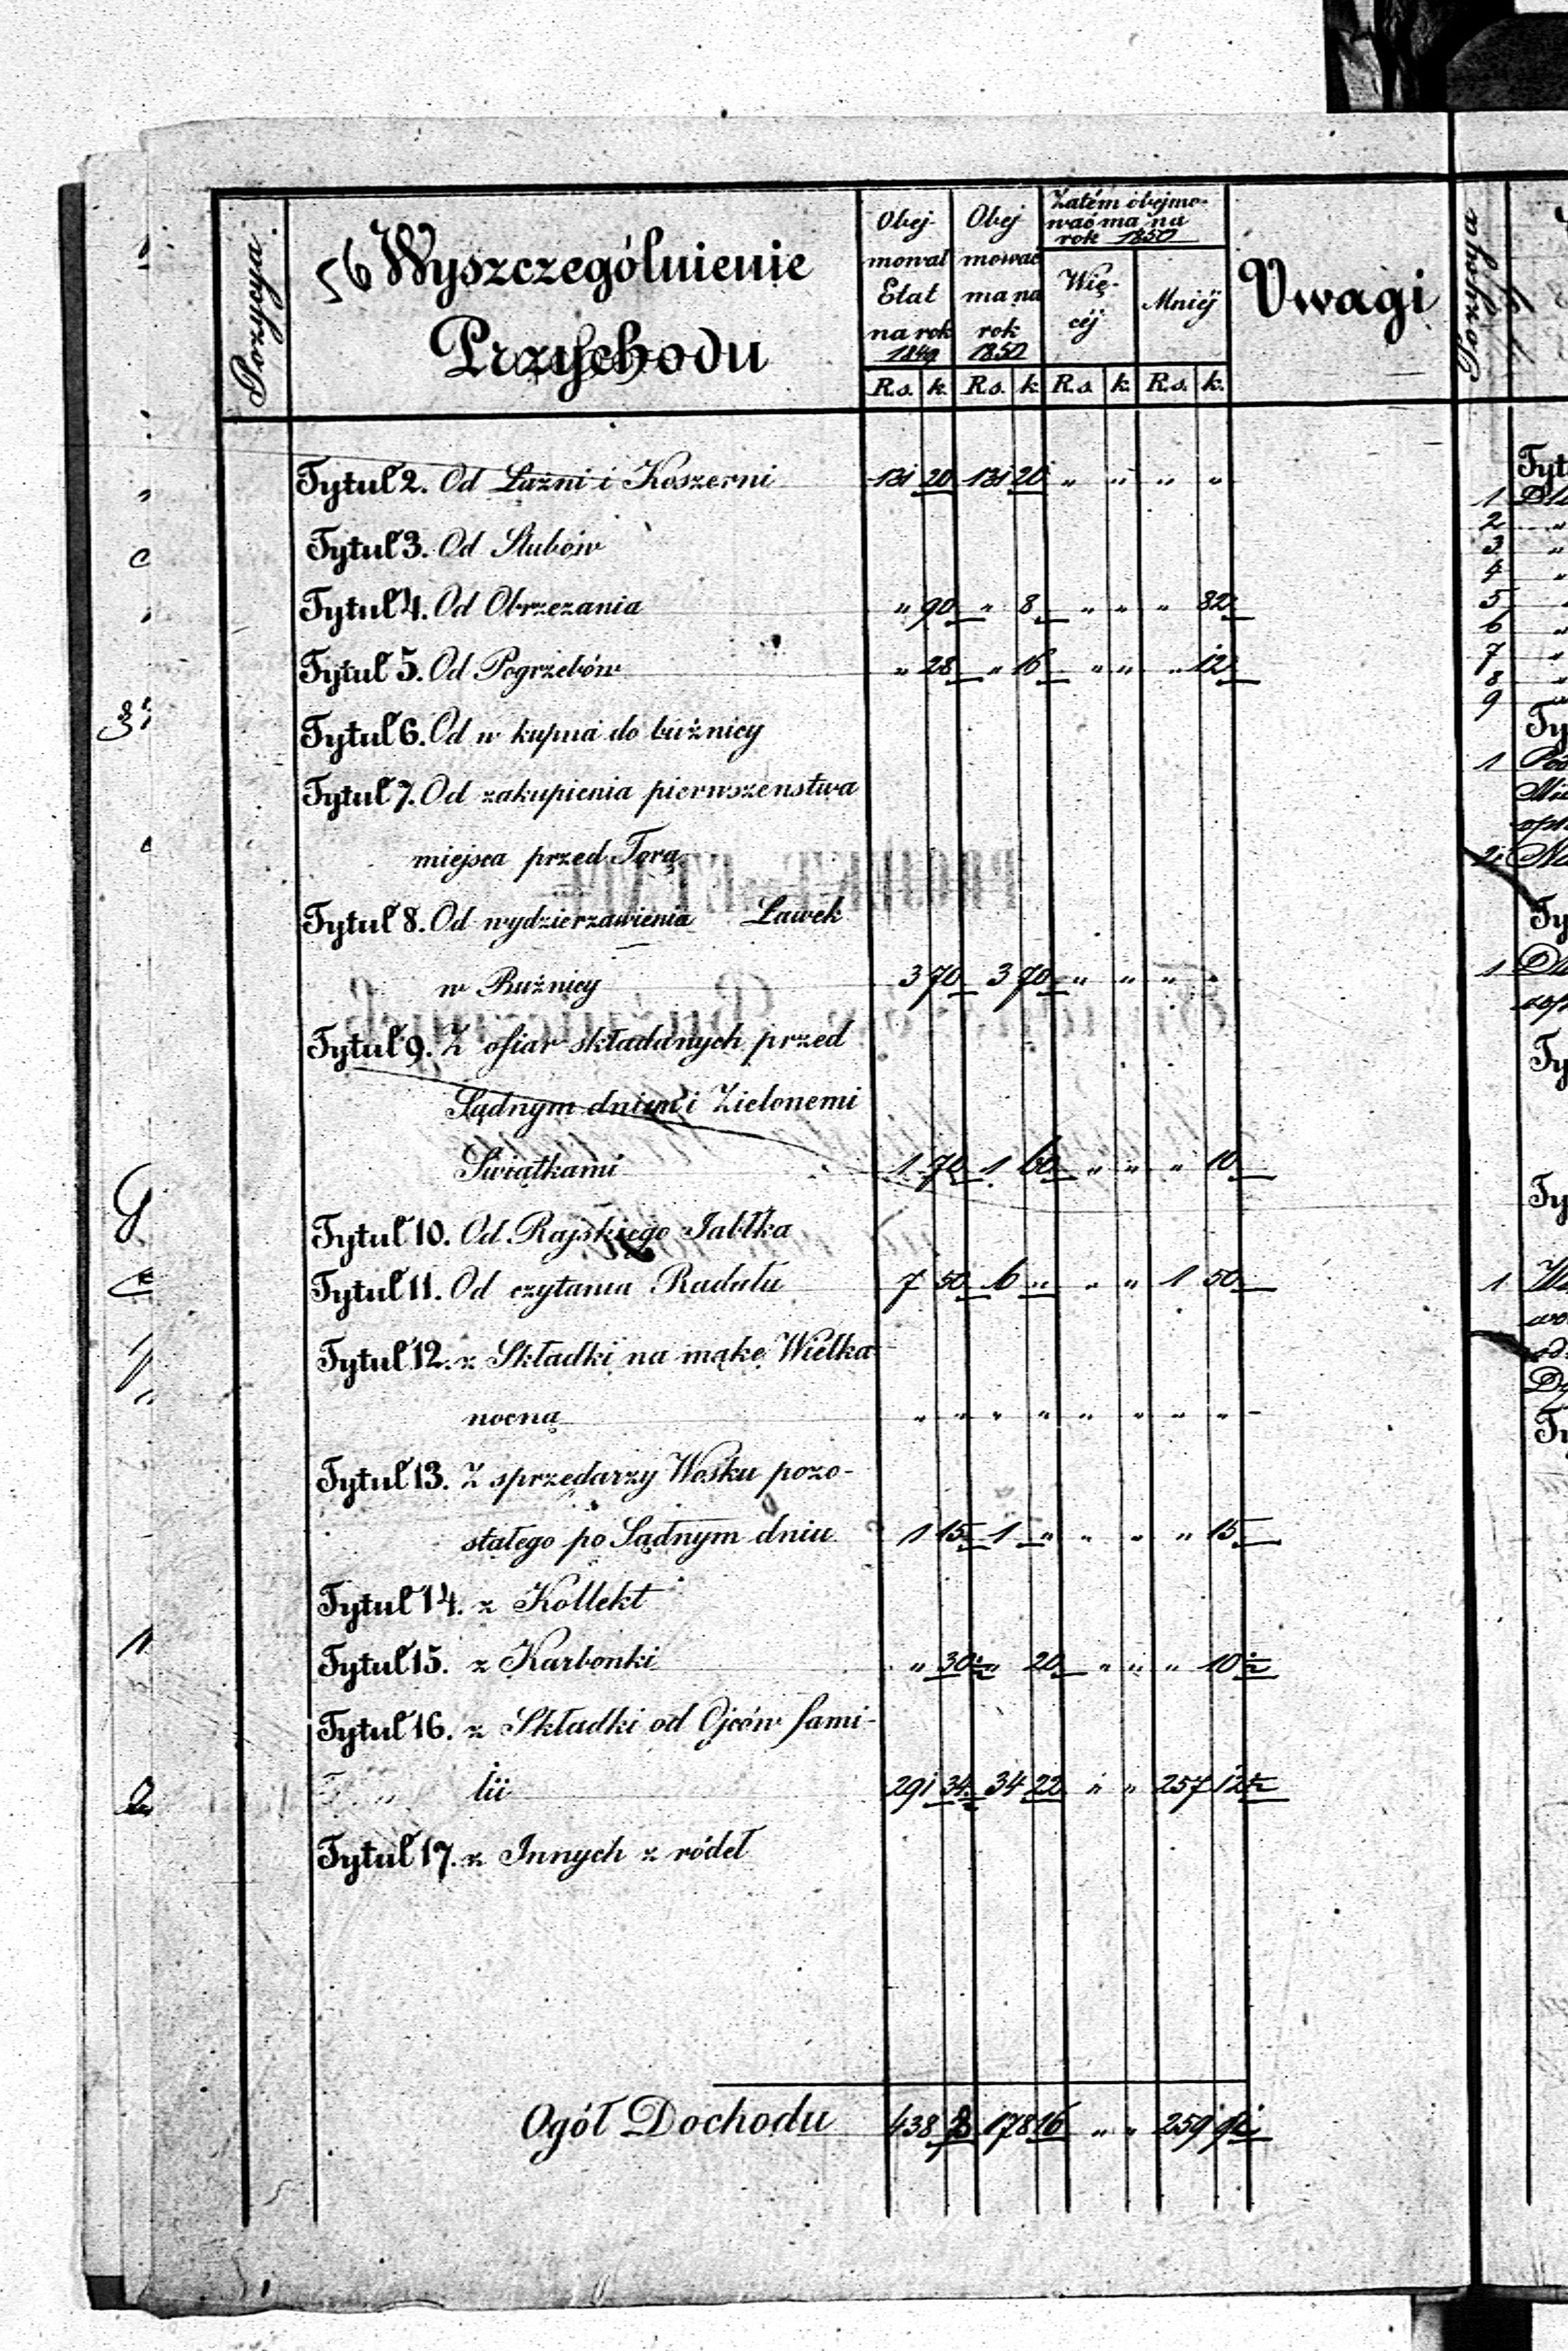 Pozycya.
56 Wyszczególnienie
Przychodu
Obej
mował
Etat
na rok
1849
Obej
mować
ma na
rok
1850
Zatém obejmo-
wać ma na
rok 1850
Wię-
céj
Mniéj
Uwagi
R.s. k. R.s. k. R.s. k. R.s. k.
Tytuł 2. Od Łaźni i Koszerni 131 20 131 20 " " " "
Tytuł 3. Od Slubów
Tytuł 4. Od Obrzezania " 90 " 8 " " " 82
Tytuł 5. Od Pogrzebów " 28 " 16 " " " 12
Tytuł 6. Od w kupna do bużnicy
Tytuł 7. Od zakupienia pierwszenstwa
miejsca przed Torą
Tytuł 8. Od wydzierzawienia Ławek
w Bużnicy 3 70 3 70 " " " "
Tytuł 9. Z ofiar składanych przed
Sądnym dniem i Zielonemi
Swiątkami 1 70 1 60 " " " 10
Tytuł 10. Od Rajskiego Jabłka
Tytuł 11. Od czytania Radału 7 50 6 " " " 1 50
Tytuł 12. z Składki na mąkę Wielka
nocną " " " " " " " "
Tytuł 13. Z sprzedarzy Wosku pozo-
stałego po Sądnym dniu 1 15 1 " " " " 15
Tytuł 14. z Kollekt
Tytuł 15. z Karbonki " 30½ " 20 " " " 10½
Tytuł 16. z Składki od Ojców fami-
lii 291 34½ 34 22 " " 257 12½
Tytuł 17. z Innych z ródeł
Ogół Dochodu 438 178 16 " " 259
Pozycya
1
2
3
4
5
6
7
8
9
1
2
1
1